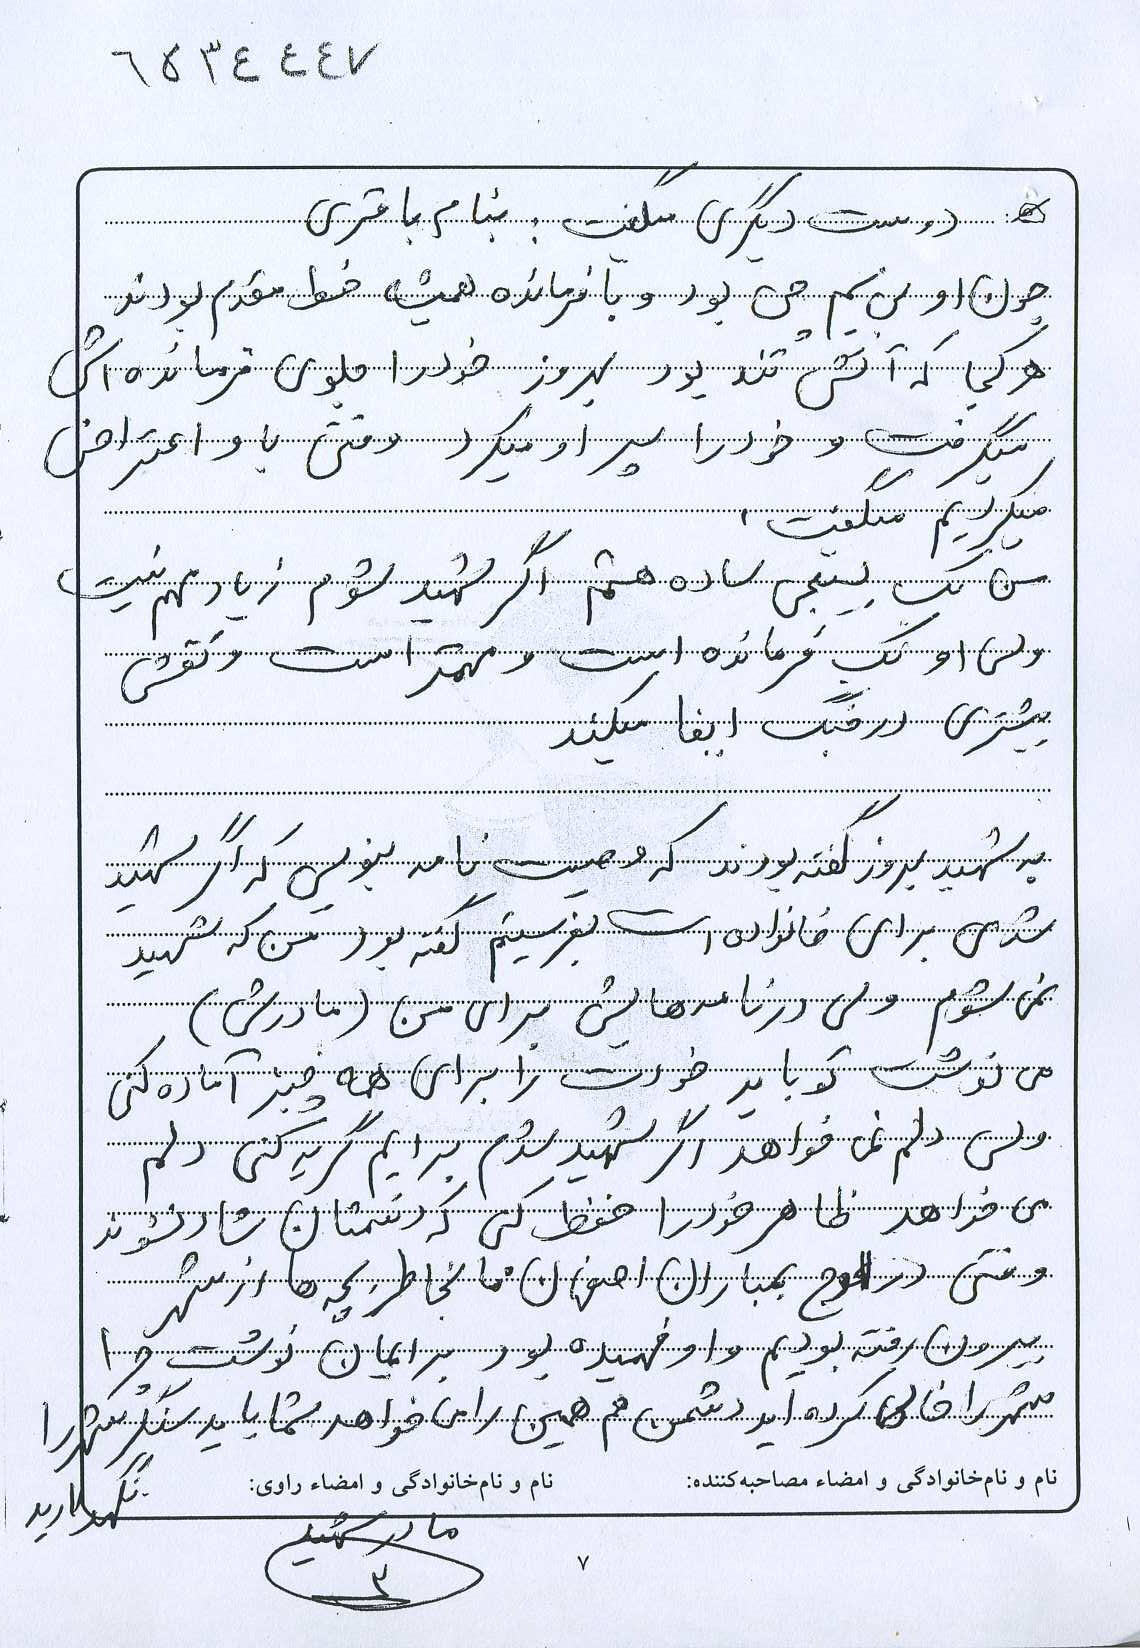 ۶۵۳۴۴۴۷
دوست دیگری میگفت : بنام باقری
چون او بی سیم چی بود و با فرمانده همیشه خط مقدم بودند
هر کجا که آتش تند بود بهروز خود را جلوی فرمانده اش
میگرفت و خود را سپر او میکرد وقتی با و اعتراض
میکردیم میگفت
من یک بسیجی ساده هستم اگر شهید شوم زیاد مهم نیست
ولی او یک فرمانده است و مهمتر است و نقش
بیشتری در جنگ ایفا میکند
به شهید بهروز گفته بودند که وصیت نامه بنویس که اگر شهید
شدی برای خانواده ات بفرستیم گفته بود من که شهید
نمی شوم ولی در نامه هایش برای من (مادرش)
می نوشت تو باید خودت را برای همه چیز آماده کنی
ولی دلم نمی خواهد اگر شهید شدم برایم گریه کنی دلم
می خواهد ظاهر خود را حفظ کنی که دشمنان شاد نشوند
وقتی در اوج بمباران اصفهان ما بخاطر بچه ها از شهر
بیرون رفته بودیم و او فهمیده بود برایمان نوشت چرا
شهر را خالی کرده اید دشمن هم همین را می خواهد شما باید سنگر شهر را
نگهدارید
نام و نام‌خانوادگی و امضاء مصاحبه‌کننده: نام و نام‌خانوادگی و امضاء راوی:
مادر شهید
۳
۷